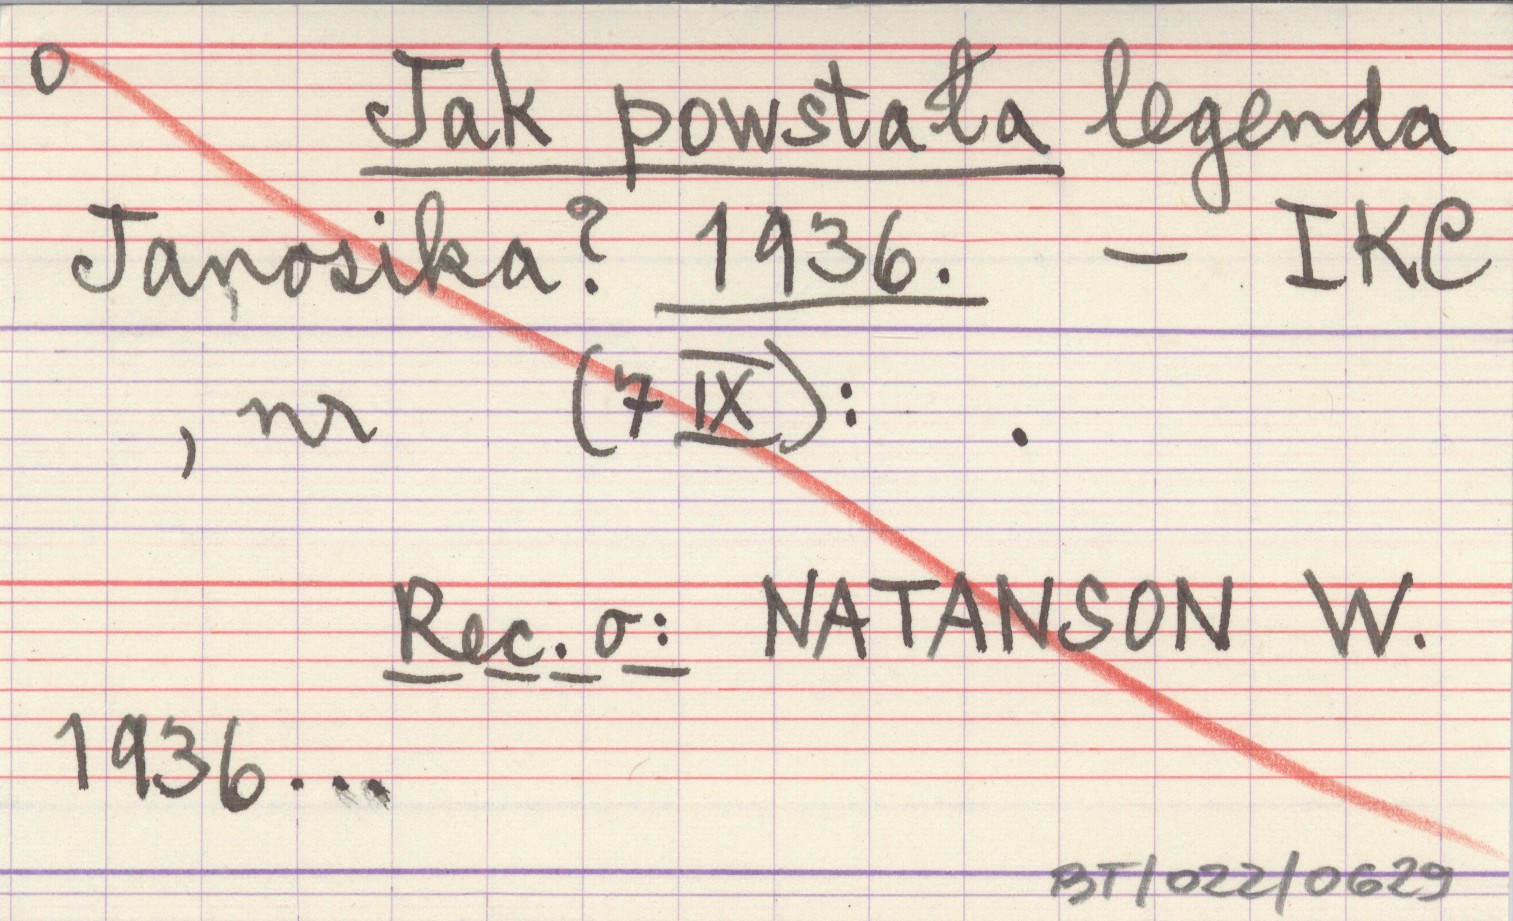 0 Jak powstała legenda
Janosika? 1936. — IKC
, nr (7 IX): .
Rec. o: NATANSON W.
1936...
BT/022/0629